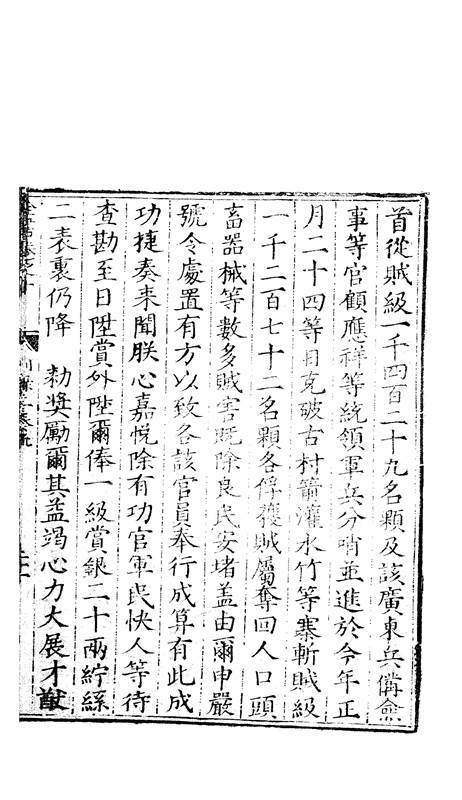 首從賊級一千四百二十九名顆及該廣東兵備僉
事等官顧應祥等統領軍兵分哨並進於今年正
月二十四等日克破古村箭灌水竹等寨斬賊級
一千二百七十二名顆各俘獲賊屬奪回人口頭
畜器械等數多賊害既除良民安堵盖由爾申嚴
號令處置有方以致各該官員奉行成算有此成
功捷奏來聞朕心嘉悅除有功官軍民快人等待
查勘至日陞賞外陞爾俸一級賞銀二十兩紵絲
二表裏仍降　勑奬勵爾其益竭心力大展才猷